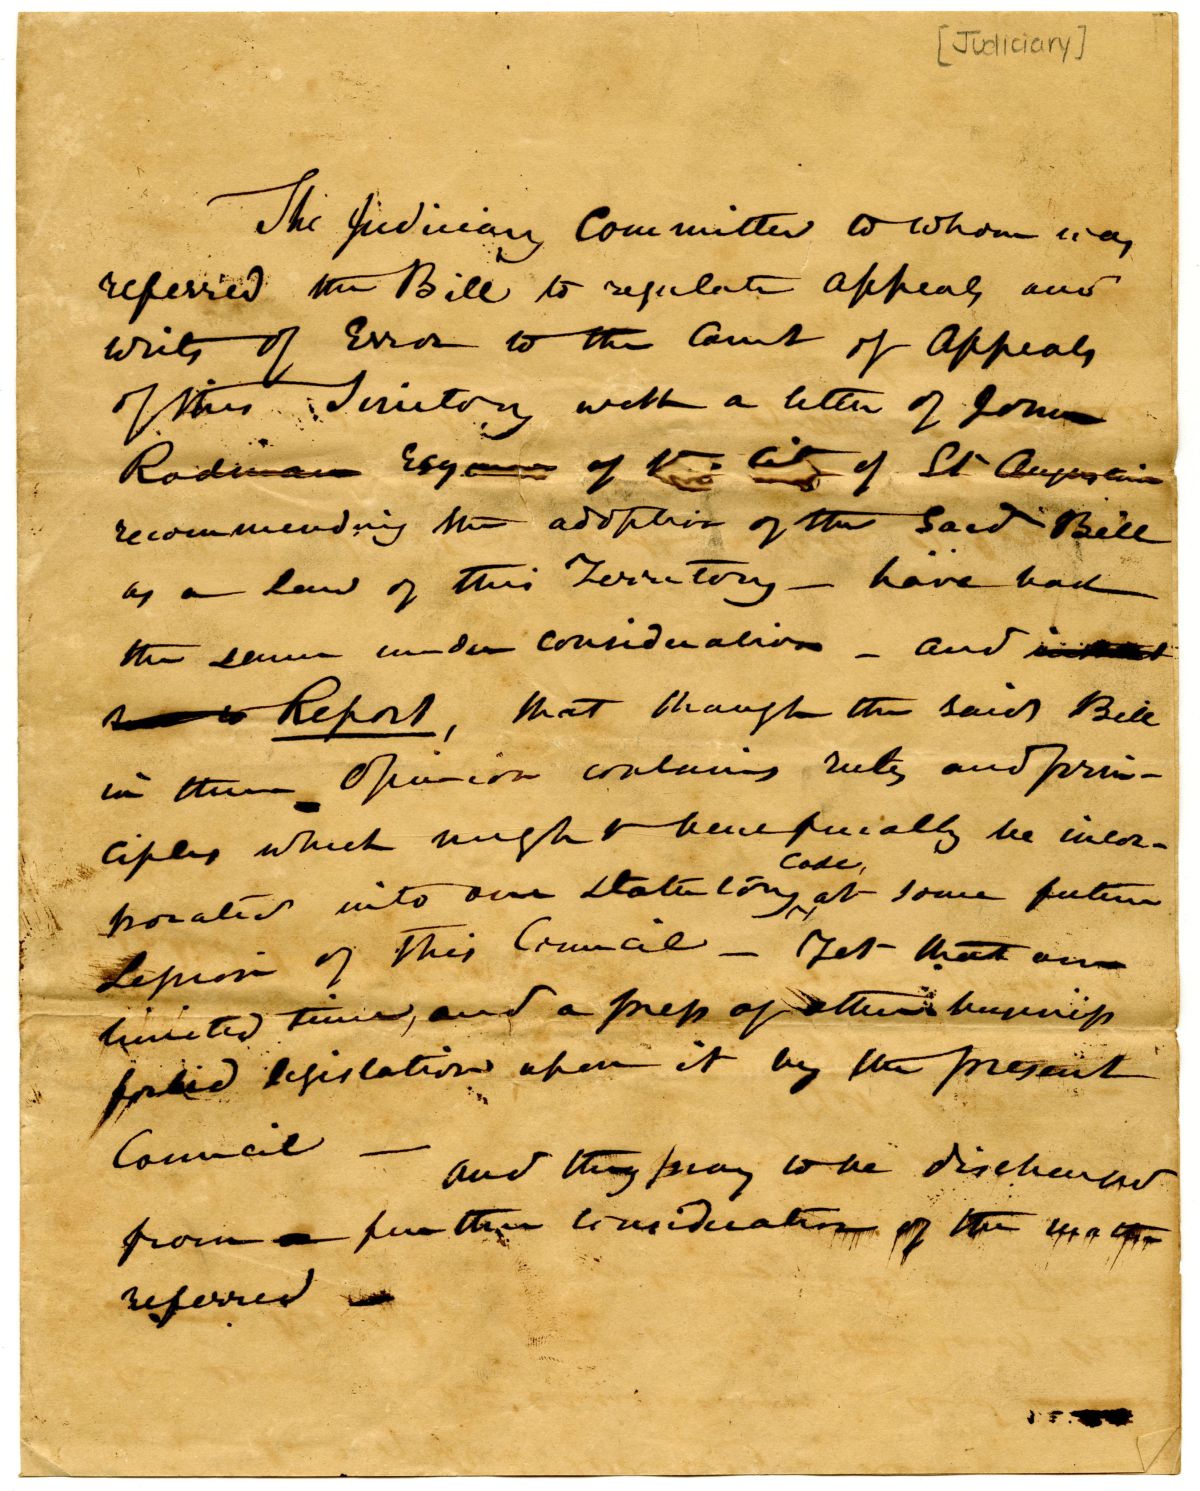 [Judiciary]
The Judiciary Committee to whom was
referred the Bill to regulate appeals and
writs of Error to the Court of Appeals
of this Territory with a letter of John
Rodman Esq of the City of St Augustine
recommending the adoption of the said Bill
as a Law of this Territory — have had
the same under consideration — and
Report, that though the said Bill
in their Opinion contains rules and prin-
ciples which might beneficially be incor-
porated into our Statutory code, at some future
Session of this Council — Yet that our
limited time, and a press of other business
forbid legislation upon it by the present
Council —
and they pray to be discharged
from a further consideration of the matter
referred —